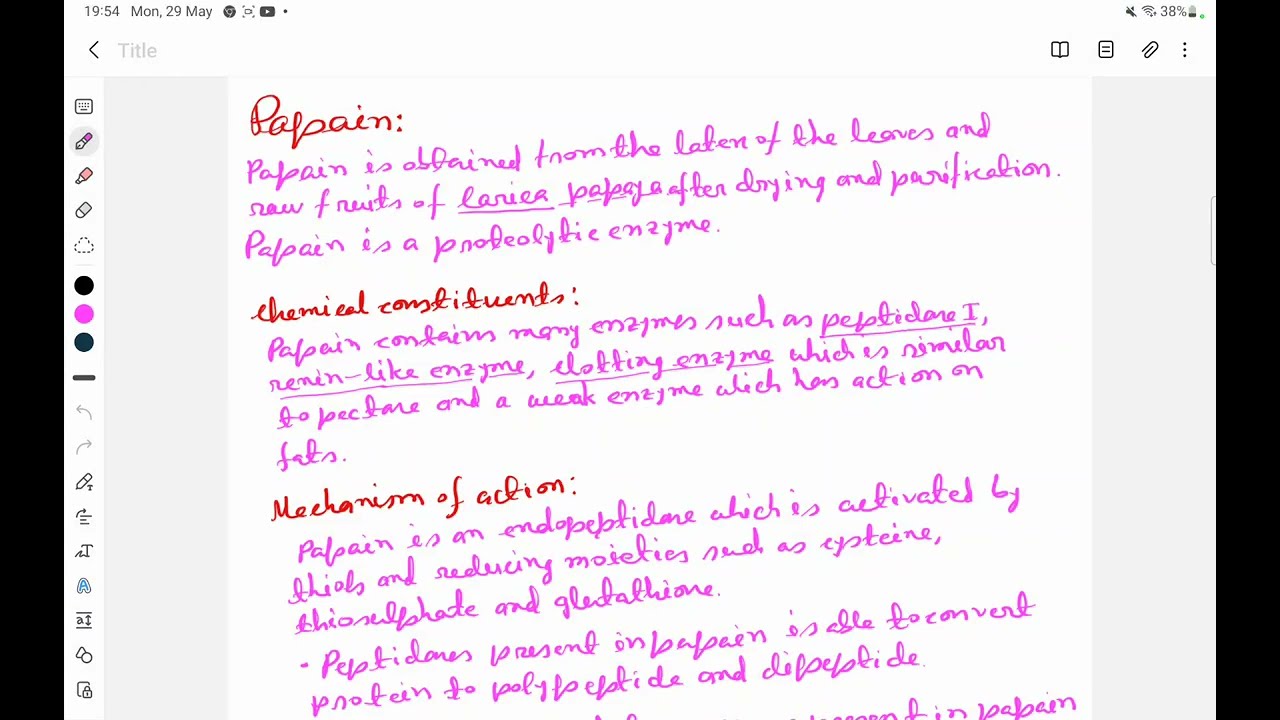 19:54 Mon, 29 May
38%
Title
Papain:
Papain is obtained from the latex of the leaves and
raw fruits of Carica papaya after drying and purification.
Papain is a proteolytic enzyme.
Chemical constituents:
Papain contains many enzymes such as peptidase I,
renin-like enzyme, clotting enzyme which is similar
to pectase and a weak enzyme which has action on
fats.
Mechanism of action:
Papain is an endopeptidase which is activated by
thiols and reducing moieties such as cysteine,
thiosulphate and glutathione.
• Peptidases present in papain is able to convert
protein to polypeptide and dipeptide.
present in papain